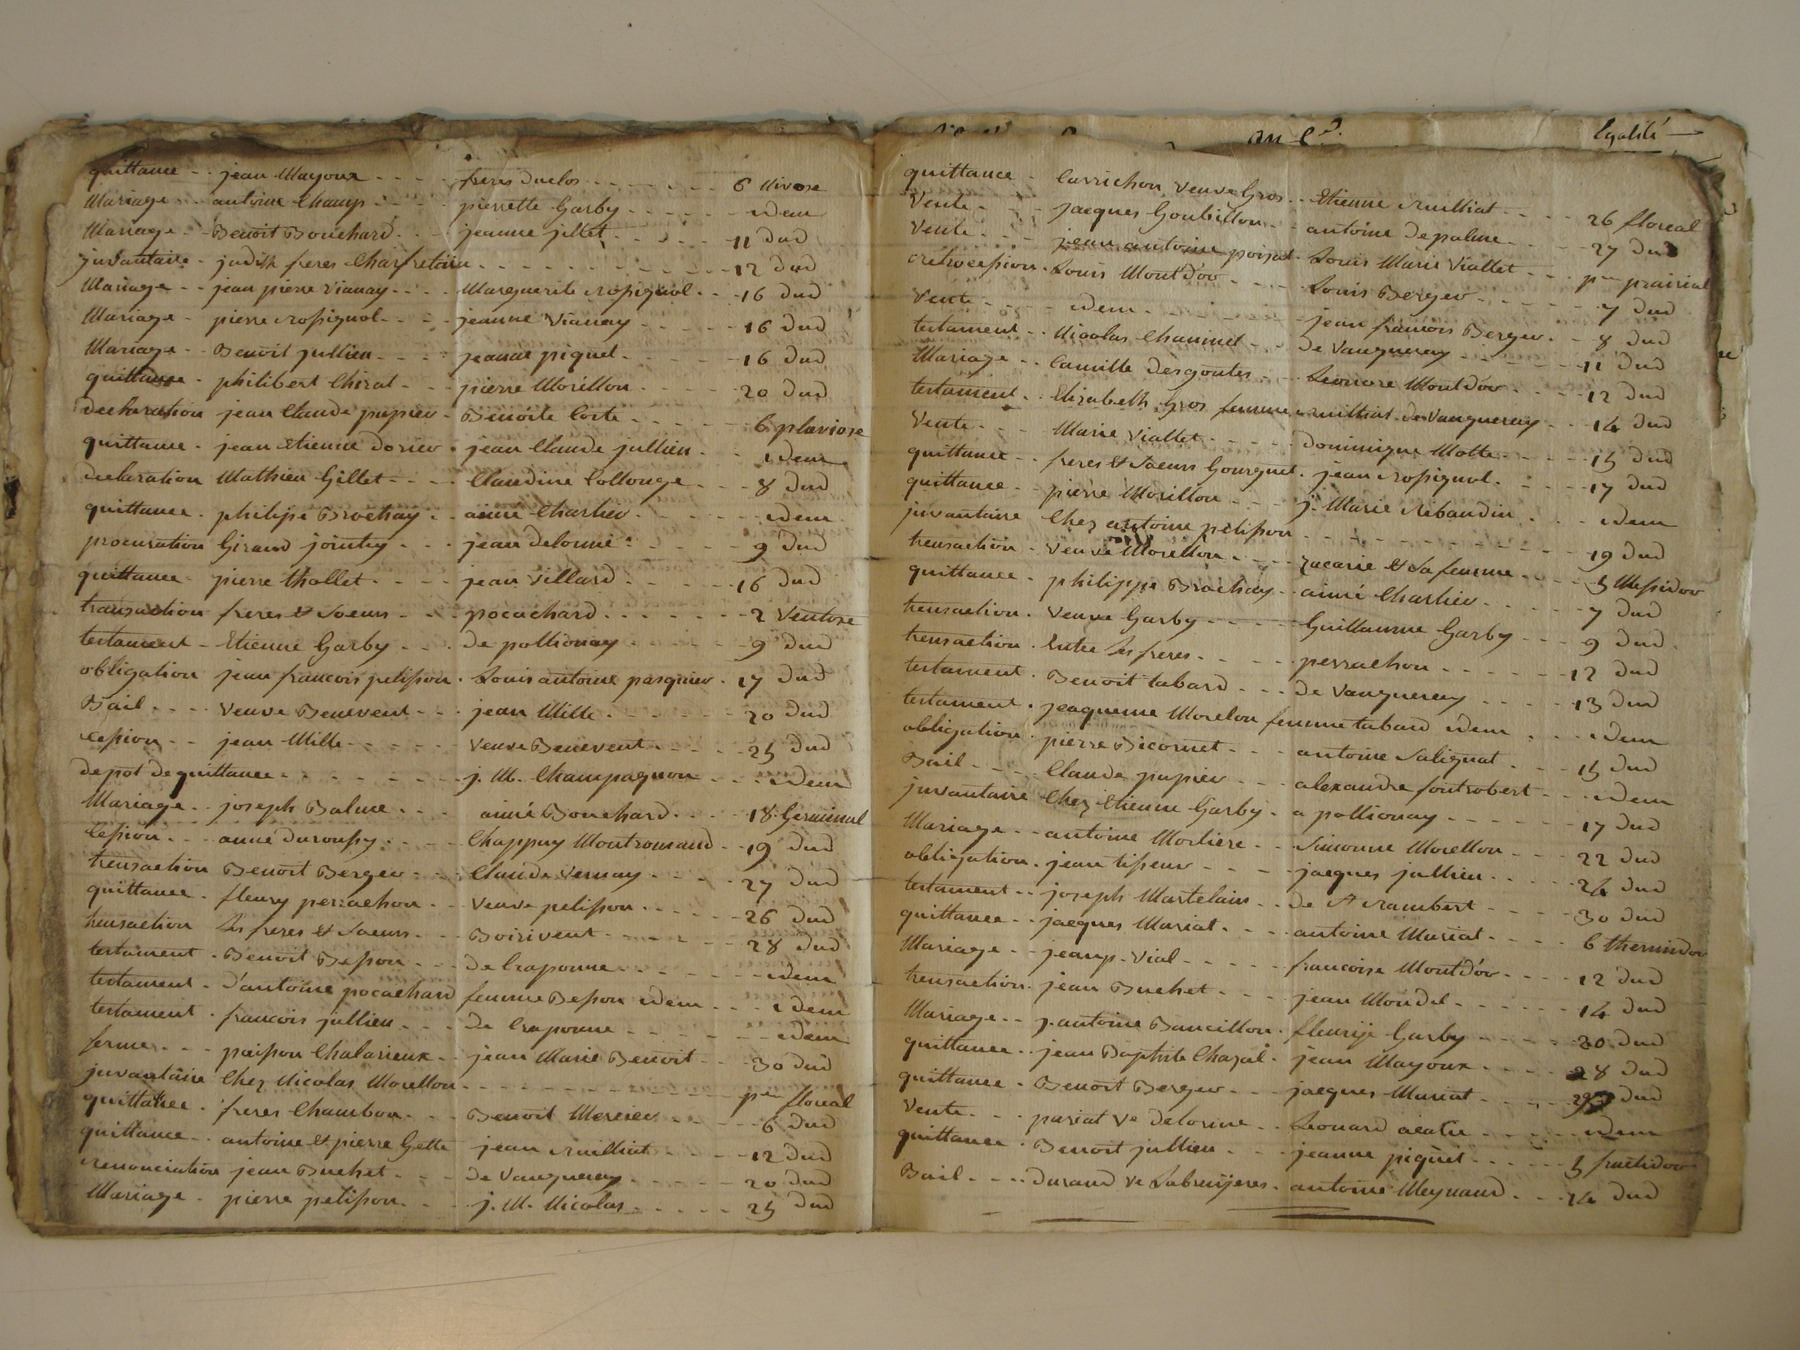 quittance - - jean Mayoux - - - - freres duclos - - - - - - - 6 Nivose
Mariage - - antoine Champ - - - - pierrette Garby - - - - - idem
Mariage - Benoit Bouchard - - - jeanne jillet - - - - - 11 dud
juvantaire - judith freres Charfretain - - - - - - - - - 12 dud
Mariage - - jean pierre Vianay - - - - Marguerite Rossignol - - 16 dud
Mariage - pierre Rossignol - - - - jeanne Vianay - - - - - 16 dud
Mariage - - Benoit jullien - - - - jeanne piquet - - - - - 16 dud
quittance - philibert Chirat - - - pierre Morillon - - - - 20 dud
declaration jean Claude pupier - Benoite Coste - - - - - 6 pluviose
quittance - jean Etienne dorier - jean Claude jullien - - idem
declaration Mathieu Gillet - - - - Claudine Collonge - - - 8 dud
quittance - philipe Brochay - - aimé Charlier - - - - - idem
procuration Giraud jointy - - - jean delorme - - - - - 9 dud
quittance - pierre thollet - - - - jean Villard - - - - - 16 dud
transaction freres et soeurs - - - pocachard - - - - - - 2 Ventose
testament - Etienne Garby - - - de pollionay - - - - - 9 dud
obligation jean francois pelisson - Louis antoine pasquier - 17 dud
Bail - - - - veuve Benevent - - - jean Mille - - - - - - 20 dud
cession - - jean Mille - - - - - veuve Benevent - - - - 25 dud
depot de quittance - - - - - - - - j. M. Champagnon - - - idem
Mariage - - joseph Balme - - - aimé Bouchard - - - - 18 Germinal
Cession - - - Chappuy Montromand - - 19 dud
transaction Benoit Berger - - - Claude Vernay - - - - 27 dud
quittance - fleury perrachon - - Veuve pelisson - - - - - 26 dud
transaction les freres et soeurs - - Boirivent - - - - - - 28 dud
testament - Benoit Besson - - - de Craponne - - - - - - idem
testament - d'antoine pocachard femme Besson idem - - - idem
testament - francois jullien - - - de Craponne - - - - - idem
ferme - - - poisson Chalarieux - - jean Marie Benoit - - 30 dud
juvantaire Chez Nicolas Morellon - - - - - - - - - - pr floreal
quittance - freres Chambon - - - Benoit Mercier - - - - 6 dud
quittance - - antoine et pierre Gette jean Rulliat - - - - - 12 dud
renonciation jean Buchet - - - de Vaugneray - - - - - - 20 dud
Mariage - pierre pelisson - - - j. M. Nicolas - - - - - 25 dud
an 2d. Egalité
quittance - Carrichon Veuve Gros - - Etienne Rulliat - - - - 26 floreal
Vente - - - jacques Goubillon - - antoine depalme - - - - 27 dud
Vente - - - jean antoine poizat - Louis Marie Viallet - - - pr prairial
retrocession - Louis Montdor - - - - Louis Berger - - - - - 7 dud
Vente - - - - idem - - - - - - - jean francois Berger - - 8 dud
testament - - Nicolas Chaninet - - de Vaugneray - - - - - 11 dud
Mariage - - Camille desgoutes - - Leonore Montdor - - - - 12 dud
testament - Elizabeth Gros femme Rulliat de Vaugneray - - 14 dud
Vente - - - Marie Viallet - - - - - dominique Motte - - - - - 15 dud
quittance - - freres et soeurs Gourguet - jean Rossignol - - - - - 17 dud
quittance - pierre Morillon - - - - j. Marie Ribaudin - - - idem
juvantaire Chez antoine pelisson - - - - - - - - - - - - 19 dud
transaction - veuve Morellon - - - - zacarie et sa femme - - - 5 Messidor
quittance - philippe Brochay - - aimé Charlier - - - - - 7 dud
transaction - Veuve Garby - - - - - Guillaume Garby - - - 9 dud
transaction - Entre les freres - - - - perrachon - - - - - - 12 dud
testament - Benoit tabard - - - de Vaugneray - - - - - 13 dud
testament - jacqueme Morelon femme tabard idem - - - idem
obligation - pierre Bicornet - - - antoine Salignat - - - - 15 dud
Bail - - - - Claude pupier - - - alexandre fontrobert - - - idem
juvantaire Chez Etienne Garby - a pollionay - - - - - - 17 dud
Mariage - - antoine Morliere - - Simonne Morellon - - - 22 dud
obligation - jean tisseur - - - - jacques jullien - - - - - 24 dud
testament - - joseph Martelain - - de St Rambert - - - - 30 dud
quittance - - jacques Muriat - - - antoine Muriat - - - - 6 thermidor
Mariage - - jean p. Vial - - - - - francoise Montdor - - - - 12 dud
transaction - jean Buchet - - - - jean Mondel - - - - - - 14 dud
Mariage - - j. antoine Bancillon - fleurije Garby - - - - - 20 dud
quittance - - jean Baptiste Chazal - jean Mayoux - - - - - 28 dud
quittance - Benoit Berger - - - jacques Muriat - - - - 29 dud
Vente - - - pariat ve delorme - - Leonard - - - - - idem
quittance - Benoit jullien - - - jeanne piquet - - - - - 5 fructidor
Bail - - - - durand ve Labruyeres - antoine Meynand - - - 24 dud